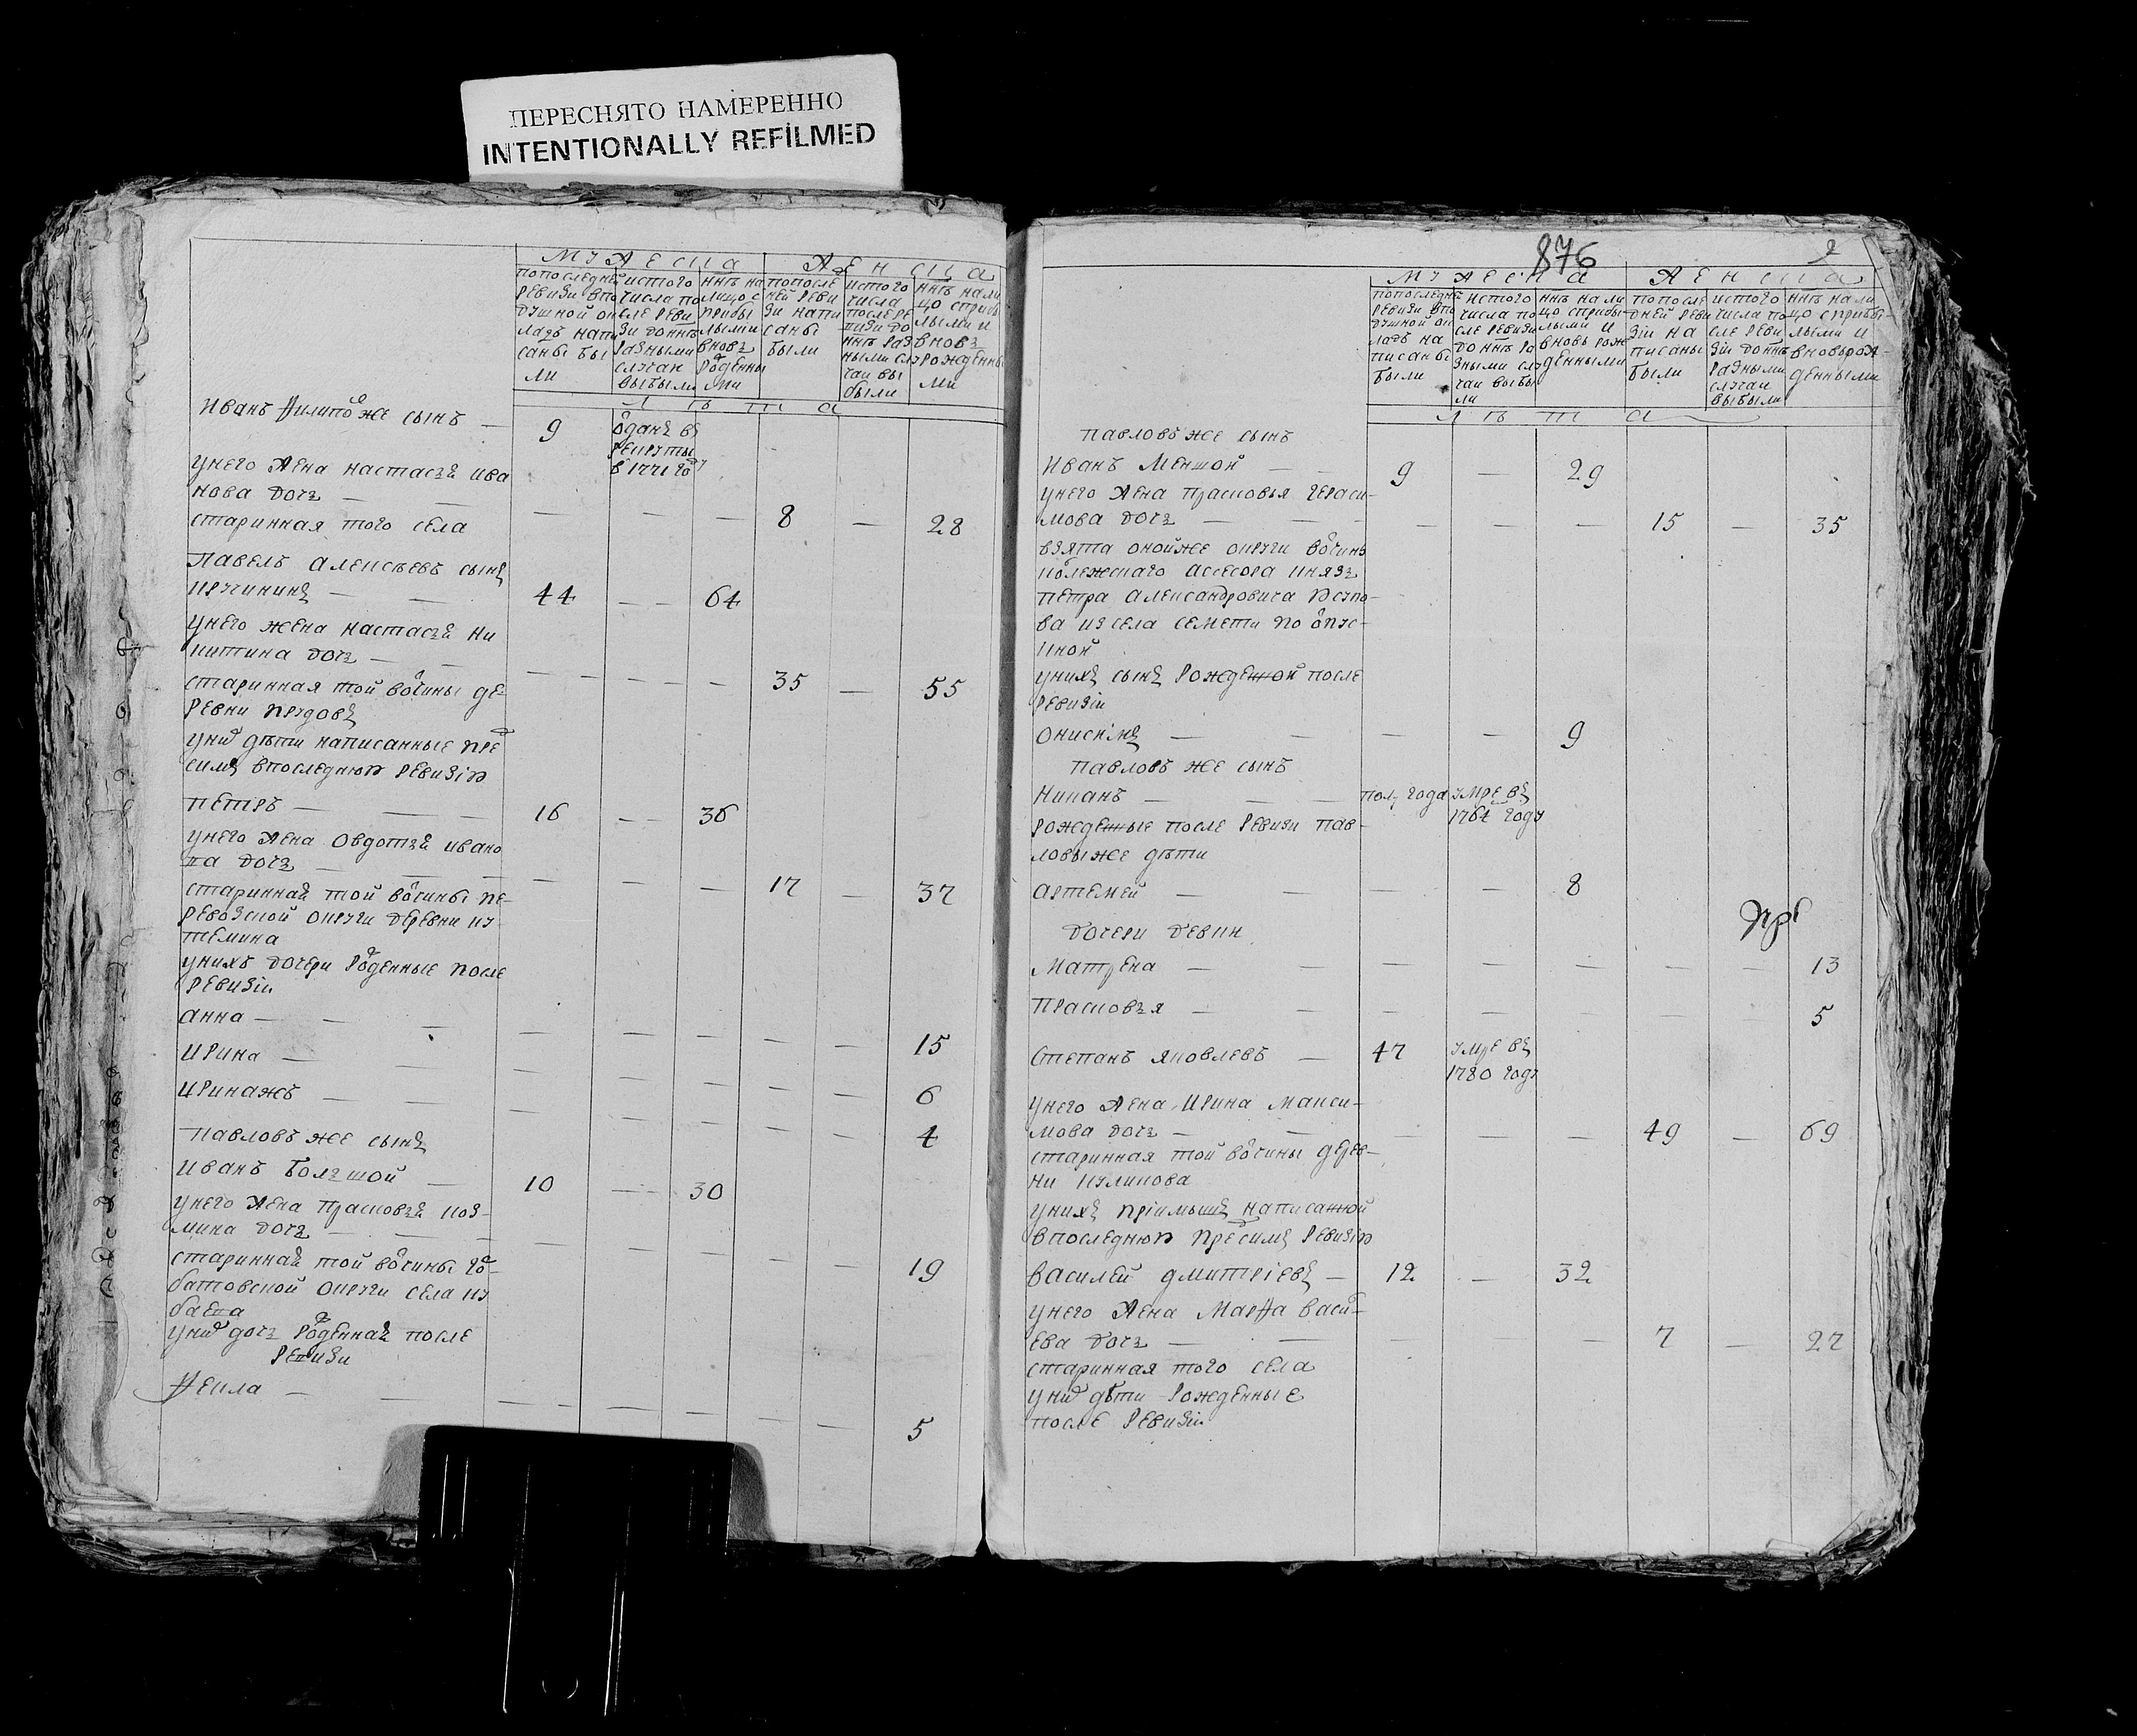 ПЕРЕСНЯТО НАМЕРЕННО
INTENTIONALLY REFILMED
МУЖЕСКА
ЖЕНСКА
по последней
ревизи в по
душной ок
ладъ напи
саны бы
ли
ис того
числа по
сле реви
зи до ннѣ
разными
случаи
выбыли
ннѣ на
лицо с
прибы
лыми и
вновъ
рожденны
ми
по после
ней реви
зи напи
саны
были
ис того
числа
после ре
визи до
ннѣ раз
ными слу
чаи вы
были
ннѣ нали
цо с прибы
лыми и
вновь
рожденны
ми
лѣта
Иванъ Филиповъ же сынъ — 9
отданъ въ
рекруты
в 1771 году
у него жена Настасья Ива
нова дочь — 8 — 28
старинная того села
Павелъ Алексѣевъ сынъ
Кручининъ — 44 — 64
у него жена Настасья Ни
китина дочь — 35 — 55
старинная той вочины де
ревни Прудовъ
у них дѣти написанные пре
симъ в последнюю ревизию
Петръ — 16 — 36
у него жена Овдотья Ивано
ва дочь — 17 — 37
старинная той вочины пе
ревозской округи деревни Ку
темина
у нихъ дочери рожденные после
ревизіи
Анна — 15
Ирина — 6
Иринажъ — 4
Павловъ же сынъ
Иванъ Болшой — 10 — 30
у него жена Прасковья Коз
мина дочь — 19
старинная той вочины гор
батовской округи села Ку
баева
у них дочь рожденная после
ревизи
Фекла — 5
876
2
МУЖЕСКА
ЖЕНСКА
по последней
ревизи в по
душной ок
ладъ на
писаны
были
ис того
числа по
сле ревизи
до ннѣ ра
зными слу
чаи выбы
ли
ннѣ на ли
цо с прибы
лыми и
вновь рож
денными
по после
дней реви
зіи на
писаны
были
ис того
числа по
сле реви
зіи до ннѣ
разными
случаи
выбыли
ннѣ на ли
цо с прибы
лыми и
вновь рож
денными
лѣта
Павловъ же сынъ
Иванъ Меншой — 9 — 29
у него жена Прасковья Гераси
мова дочь — 15 — 35
взята оной же округи вочины
колежскаго асесора князь
Петра Александровича Юсупо
ва из села Семети по отпус
кной
у нихъ сынъ рожденной после
ревизіи
Онисимъ — 9
Павловъ же сынъ
Никанъ — полъ года
умре въ
1764 году
рожденые после ревизи Пав
ловы же дѣти
Артемей — 8
дочери девки
Матрена — 13
Прасковья — 5
Степанъ Яковлевъ — 47
умре въ
1780 году
у него жена Ирина Макси
мова дочь — 49 — 69
старинная той вочины дерев
ни Куликова
у нихъ пріимышъ написанной
в последнюю пре симъ ревизію
Василей Дмитріевъ — 12 — 32
у него жена Марфа Васил
ева дочь — 7 — 27
старинная того села
у них дѣти рожденные
после ревизіи